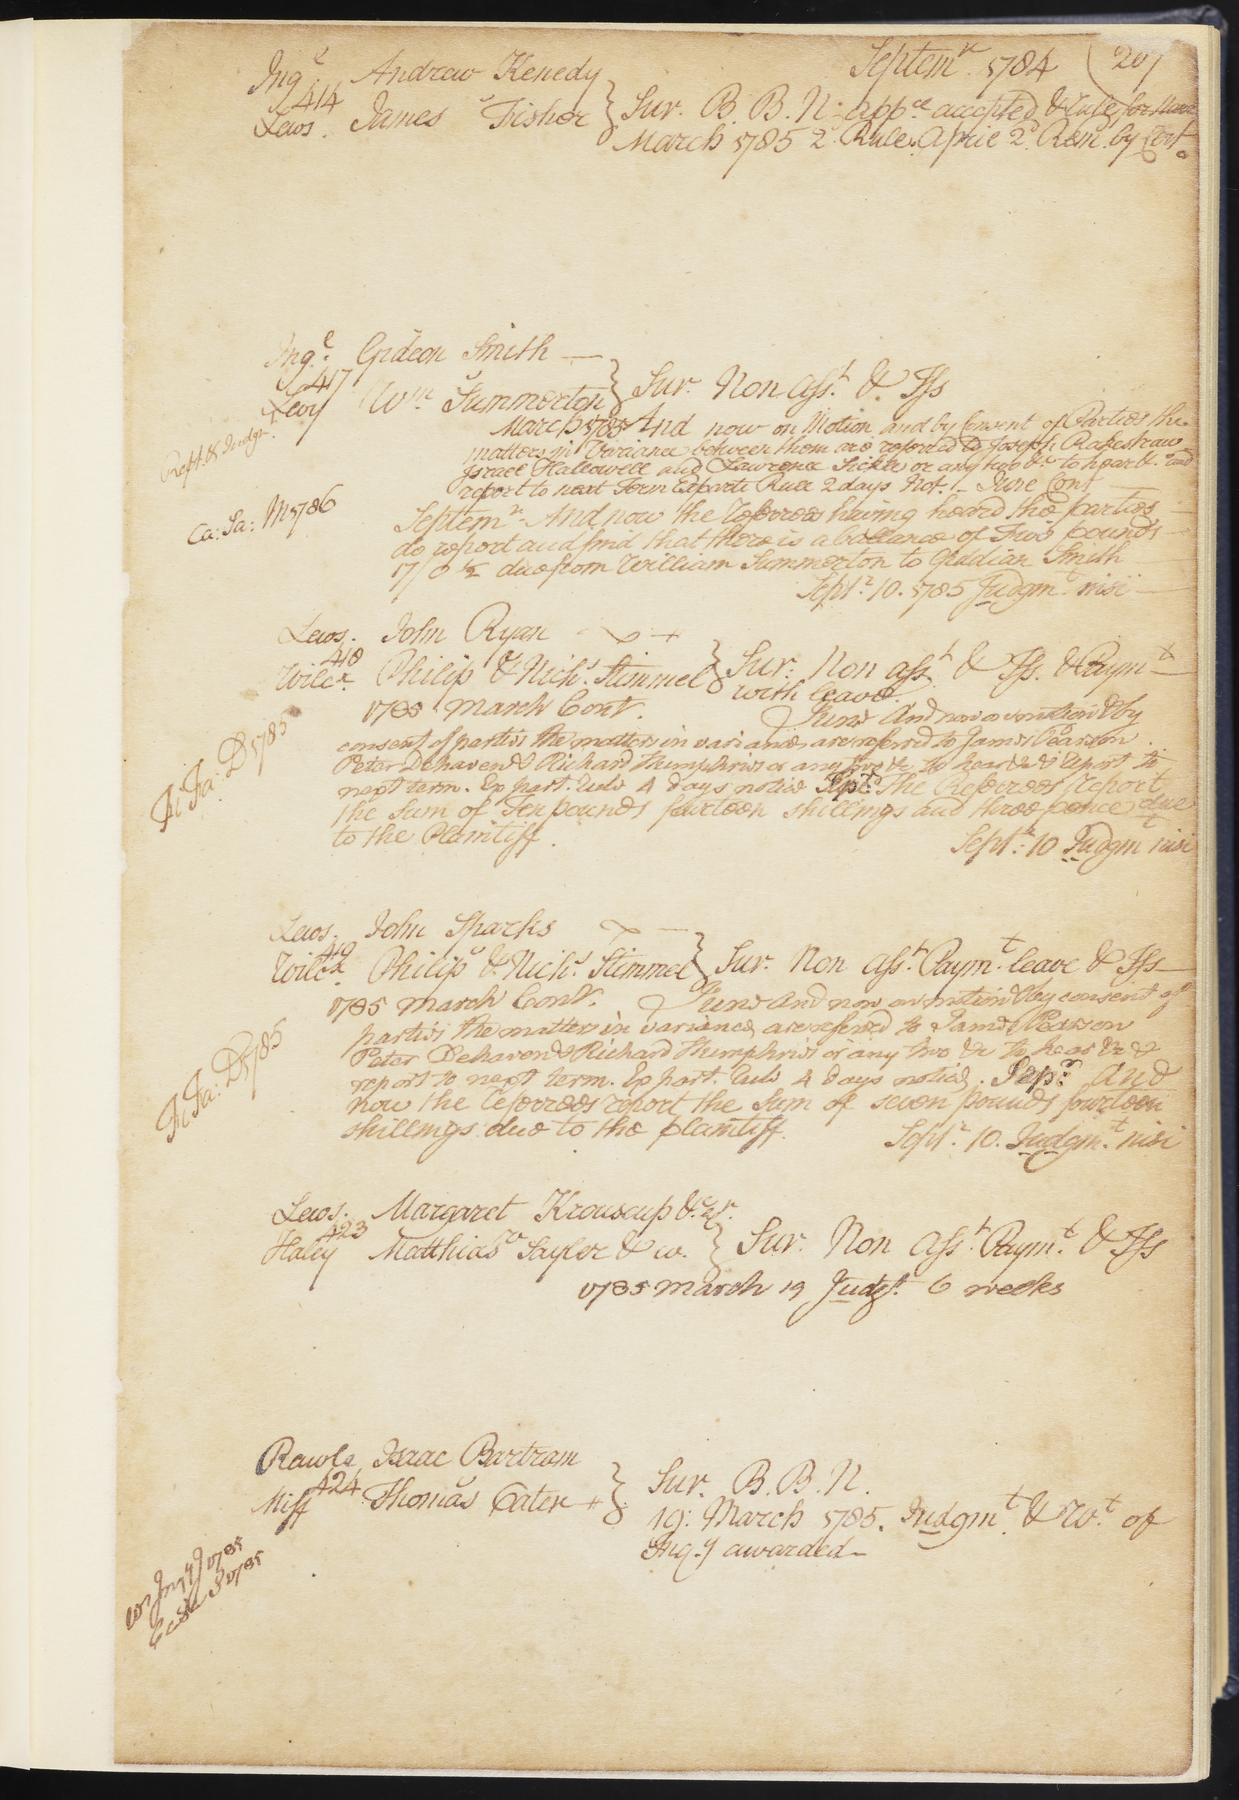 Septemr. 1784 (207
Ingl. Andrew Kenedy
414
Lews. James Fisher } Sur. B. B. N. appce accepted & Rule for Narr
March 1785 2d. Rule. Aprie 2d. Rem. by Cert.
Ingl. Gideon Smith —
417
Levy Wm. Summerton } Sur. Non Asst. & Iss
March 1785 And now on Motion and by Consent of Parties the
matters in Variance between them are refered to Joseph Rakestraw
Israel Hallowell and Lawrence Sickle or any two &c. to hear &c. and
report to next Term Exparte Rule 2 days Not. June Cont
Rept. & Judgt.
Ca: Sa: M 1786
Septemr. And now the Referrees having heard the parties
do report and find that there is a ballance of Two pounds
17/0 ½ due from William Summerton to Giddian Smith
Septr. 10. 1785 Judgmt. nisi
Lews. John Ryan
418
Wilcx. Philip & Nichs. Stimmel } Sur. Non asst. & Iss. & Paymt
with leave
1785 March Cont. June And now on motion & by
consent of parties the matters in variance are referred to James Pearson
Peter Dehaven & Richard Humphries or any two &c to hear &c & report to
next term. Ex part. Rule 4 days notice Sepr. The Referrees report
the Sum of Ten pounds fourteen shillings and three pence due
to the Plaintiff.
Septr. 10 Judgmt nisi
Fi Fa: D 1785
Lews. John Sparks
419
Wilcx. Philip & Nichs. Stimmel } Sur. Non asst. Paymt. leave & Iss
1785 March Cont. June And now on motion & by consent of
parties the matters in variance are referred to James Pearson
Peter Dehaven & Richard Humphries or any two &c to hear &c &
report to next term. Ex part. Rule 4 days notice. Sepr. And
now the Referrees report the Sum of seven pounds fourteen
shillings due to the plaintiff.
Septr. 10. Judgmt. nisi
Fi Fa: D 1785
Lews. Margaret Krouscup
423
Haley Matthias Sayler & co. } Sur. Non Asst. Paymt. & Iss
1785 March 19 Judgt. 6 weeks
Rawle Isaac Bartram
424
Miff Thomas Cater } Sur. B. B. N.
19: March 1785. Judgmt. & Wt. of
Inq.y awarded
Wr Inqy J 1785
S 1785